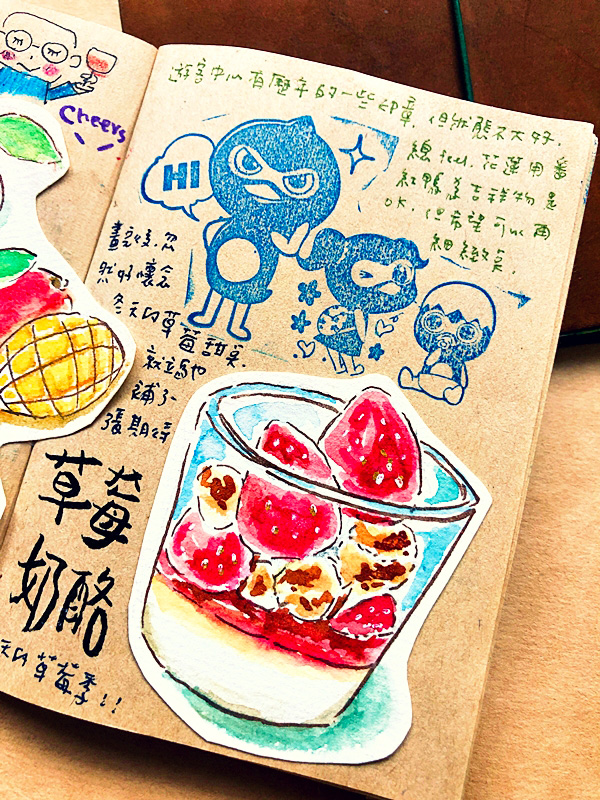 Cheers
遊客中心有歷年的一些印章,但狀態不太好,
總feel,花蓮用番
紅鴨為吉祥物是
OK,但希望可以再
細緻点,
HI
畫完後,忽
然好懷念
冬天的草莓甜点,
就給他
補了一
張期待
草莓
奶酪
天的草莓季!!